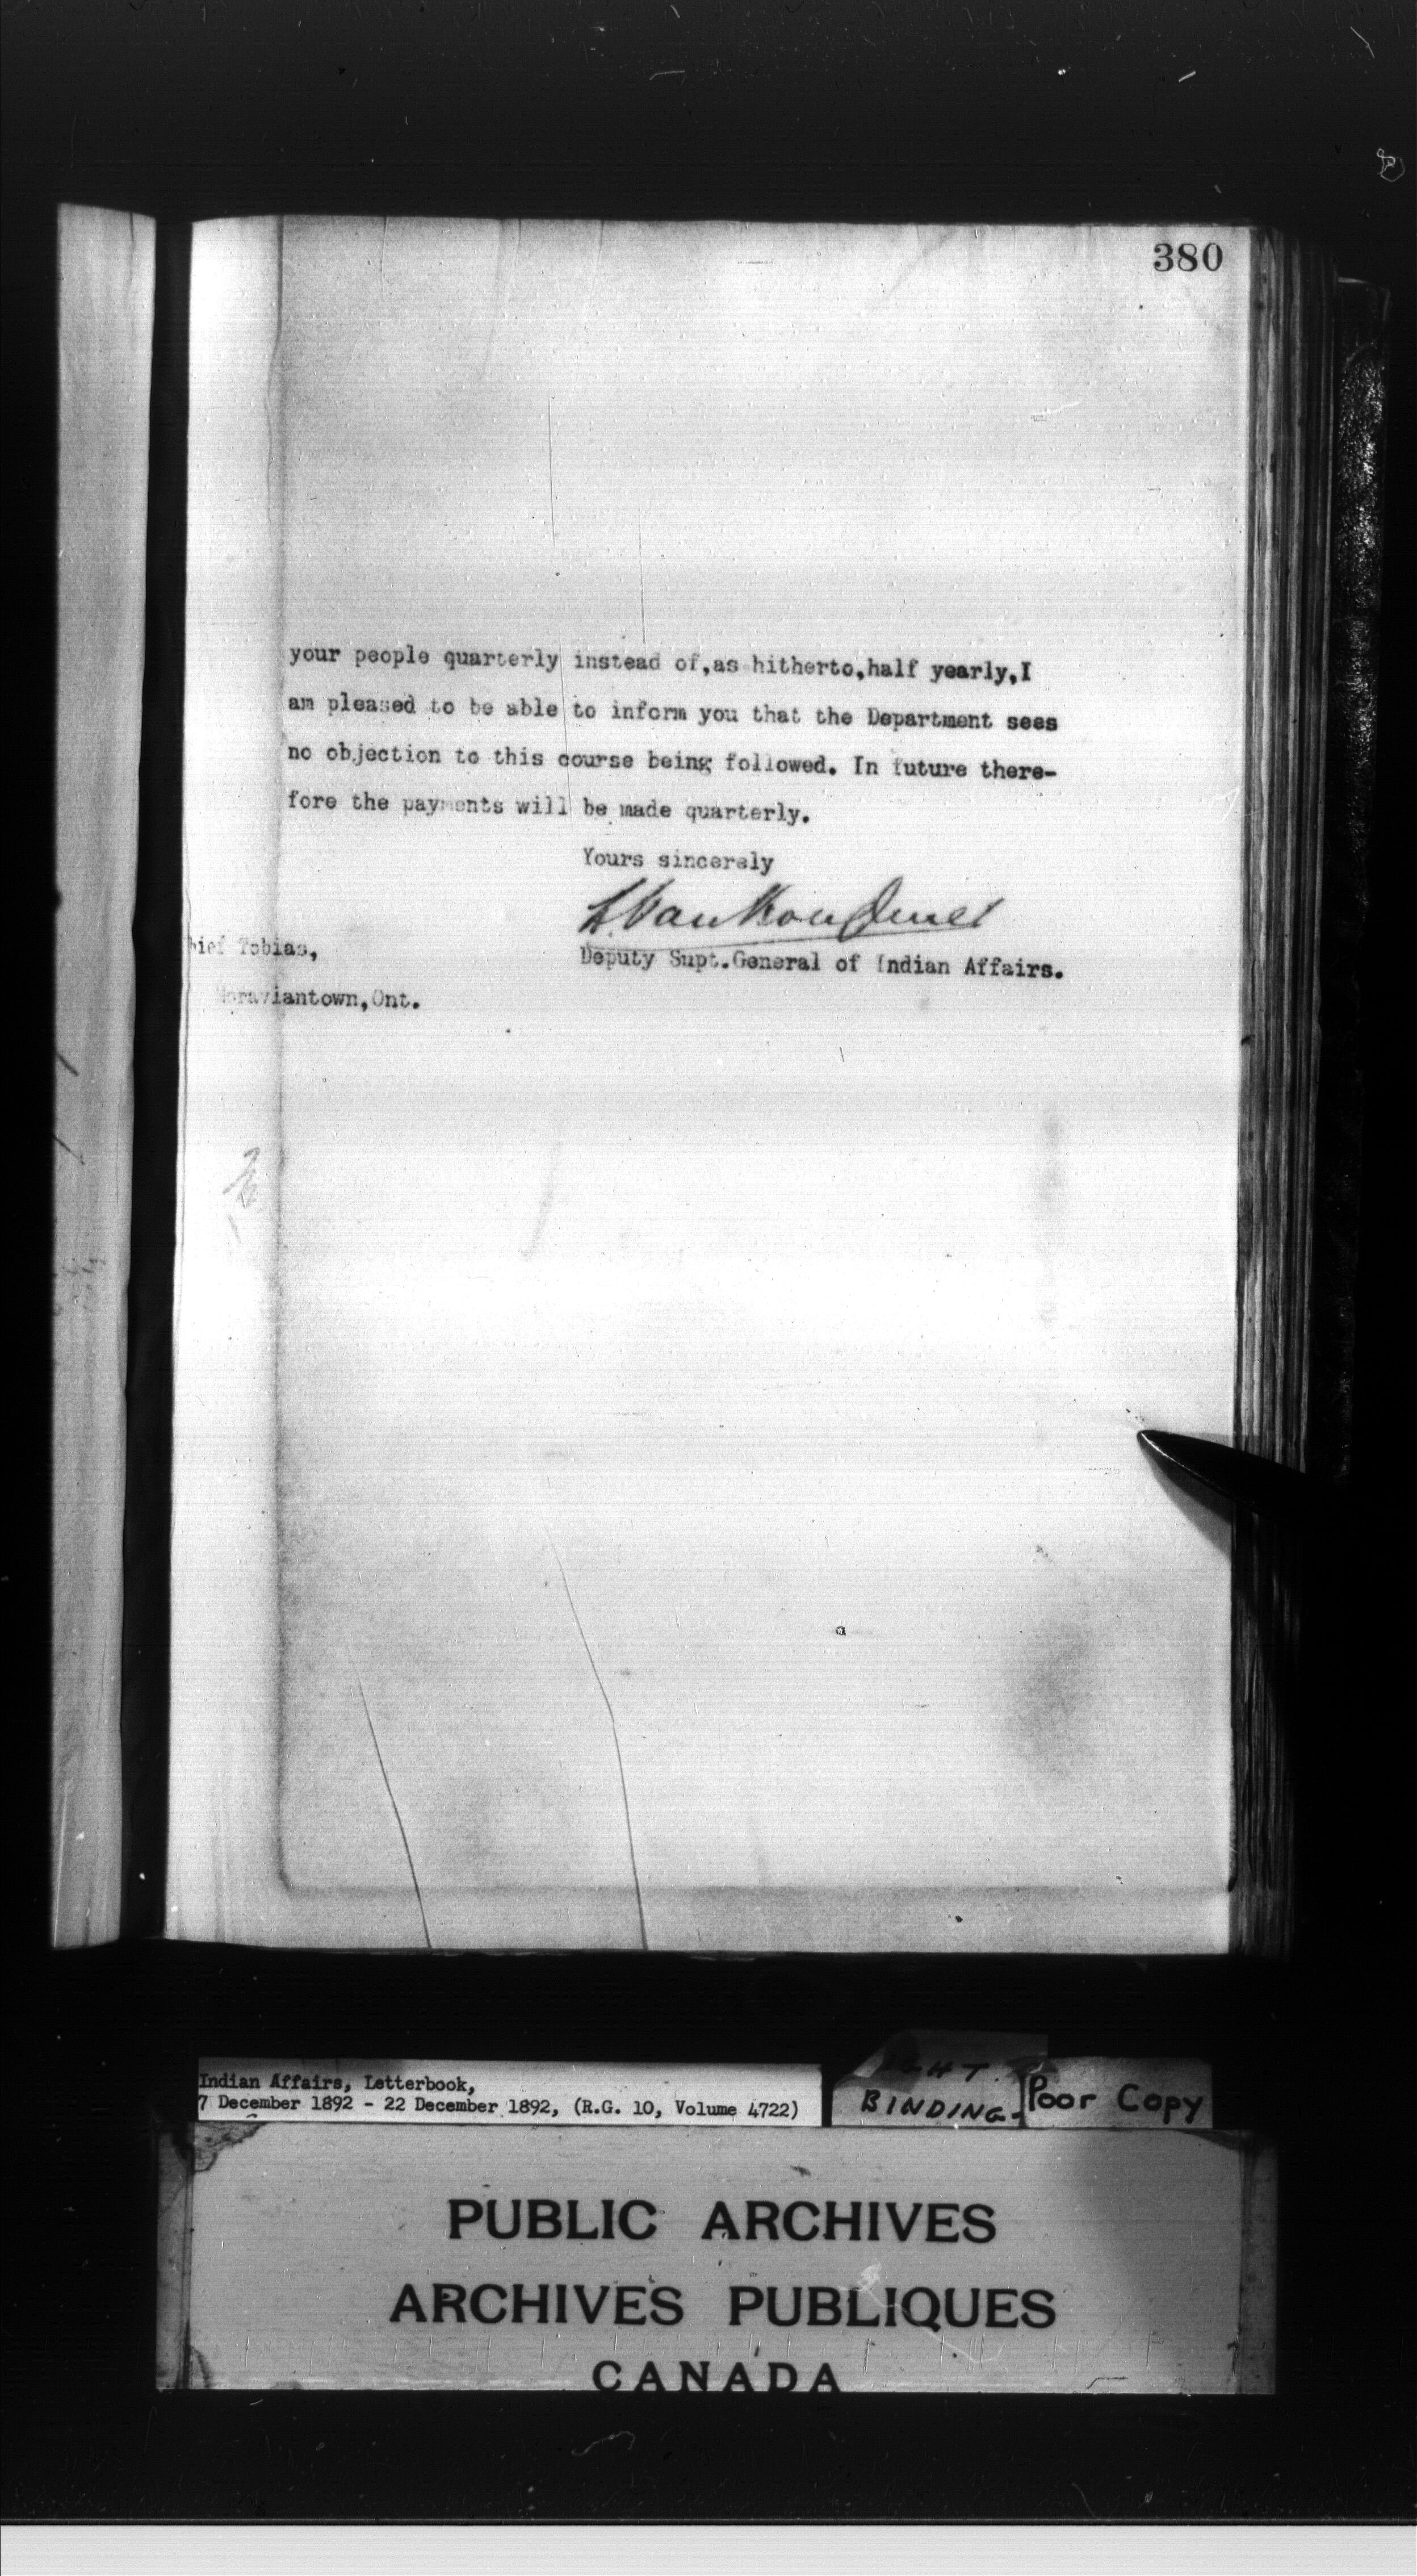 380
your people quarterly instead of,as hitherto,half yearly,I
am pleased to be able to inform you that the Department sees
no objection to this course being followed. In future there-
fore the payments will be made quarterly.
Yours sincerely
L. VanKoughnet
Deputy Supt.General of Indian Affairs.
hief Tobias,
Moraviantown,Ont.
Indian Affairs, Letterbook,
7 December 1892 - 22 December 1892, (R.G. 10, Volume 4722)
BINDING-
Poor Copy
PUBLIC ARCHIVES
ARCHIVES PUBLIQUES
CANADA